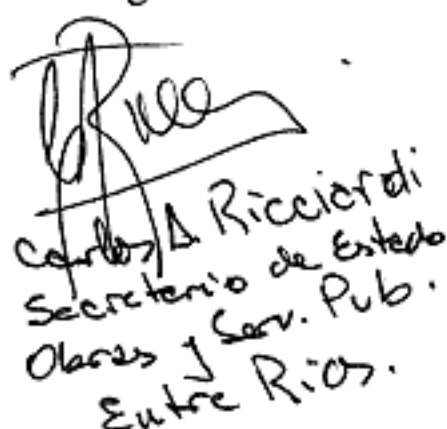 Carlos A. Ricciardi
Secretario de Estado
Obras y Serv. Pub.
Entre Rios.